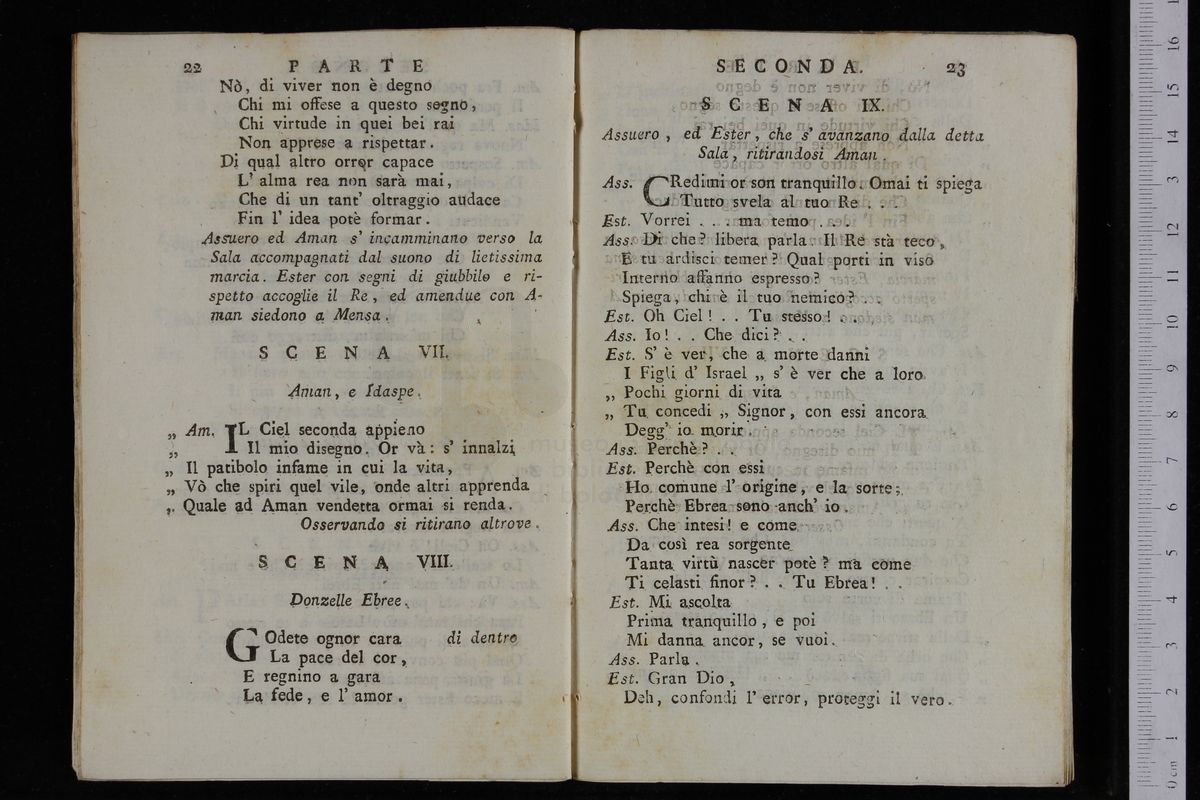 22 PARTE
Nò, di viver non è degno
Chi mi offese a questo segno,
Chi virtude in quei bei rai
Non apprese a rispettar.
Di qual altro orror capace
L' alma rea non sarà mai,
Che di un tant' oltraggio audace
Fin l' idea potè formar.
Assuero ed Aman s' incamminano verso la
Sala accompagnati dal suono di lietissima
marcia. Ester con segni di giubbilo e ri-
spetto accoglie il Re, ed amendue con A-
man siedono a Mensa.
SCENA VII.
Aman, e Idaspe.
„ Am. IL Ciel seconda appieno
„ Il mio disegno. Or và: s' innalzi
„ Il patibolo infame in cui la vita,
„ Vò che spiri quel vile, onde altri apprenda
„ Quale ad Aman vendetta ormai si renda.
Osservando si ritirano altrove.
SCENA VIII.
Donzelle Ebree.
GOdete ognor cara di dentro
La pace del cor,
E regnino a gara
La fede, e l' amor.
SECONDA. 23
SCENA IX.
Assuero, ed Ester, che s' avanzano dalla detta
Sala, ritirandosi Aman.
Ass. CRedimi or son tranquillo. Omai ti spiega
Tutto svela al tuo Re . . .
Est. Vorrei . . . ma temo . . .
Ass. Di che? libera parla. Il Re stà teco,
E tu ardisci temer? Qual porti in viso
Interno affanno espresso?
Spiega, chi è il tuo nemico? . .
Est. Oh Ciel! . . Tu stesso! . .
Ass. Io! . . Che dici? . .
Est. S' è ver, che a morte danni
I Figli d' Israel „ s' è ver che a loro
„ Pochi giorni di vita
„ Tu concedi „ Signor, con essi ancora
Degg' io morir.
Ass. Perchè? . .
Est. Perchè con essi
Ho comune l' origine, e la sorte;
Perchè Ebrea sono anch' io.
Ass. Che intesi! e come
Da così rea sorgente
Tanta virtù nascer potè? ma come
Ti celasti finor? . . Tu Ebrea! . .
Est. Mi ascolta
Prima tranquillo, e poi
Mi danna ancor, se vuoi.
Ass. Parla.
Est. Gran Dio,
Deh, confondi l' error, proteggi il vero.